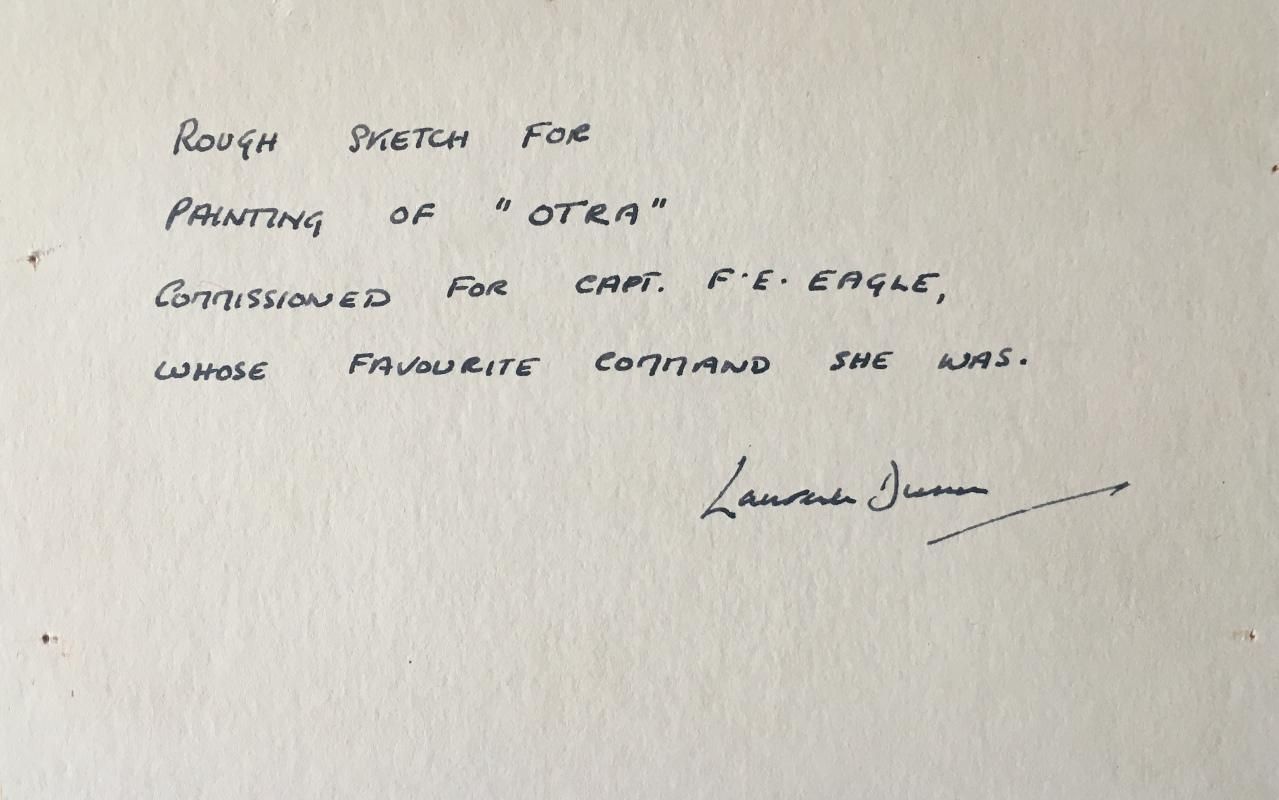 ROUGH SKETCH FOR
PAINTING OF "OTRA"
COMMISSIONED FOR CAPT. F.E. EAGLE,
WHOSE FAVOURITE COMMAND SHE WAS.
Laurence Dunn